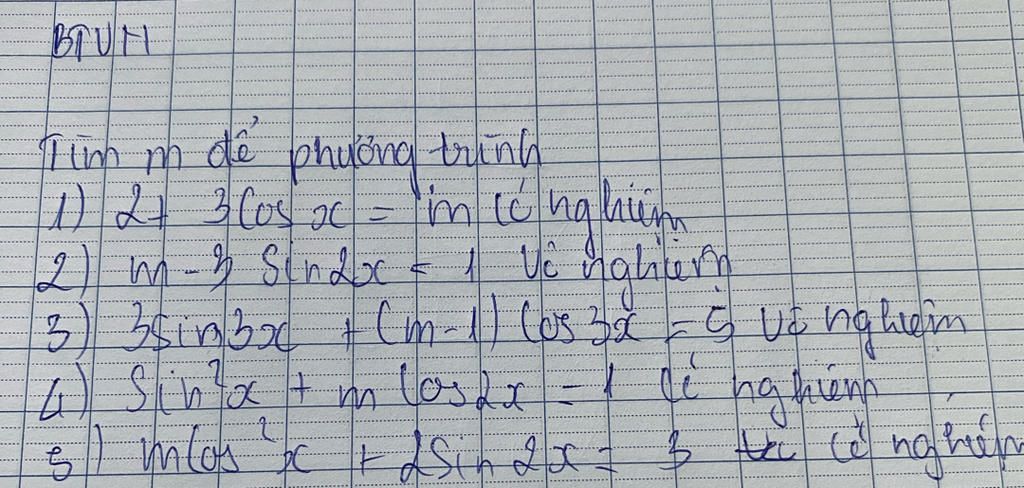 BTVN
Tìm m để phương trình
1) 2 + 3 cos x = m có nghiệm
2) m - 3 sin 2x = 1 vô nghiệm
3) 3 sin 3x + (m - 1) cos 3x = 5 vô nghiệm
4) Sin²x + m cos 2x = 1 có nghiệm
5) m cos²x + 2 sin 2x = 3 có nghiệm